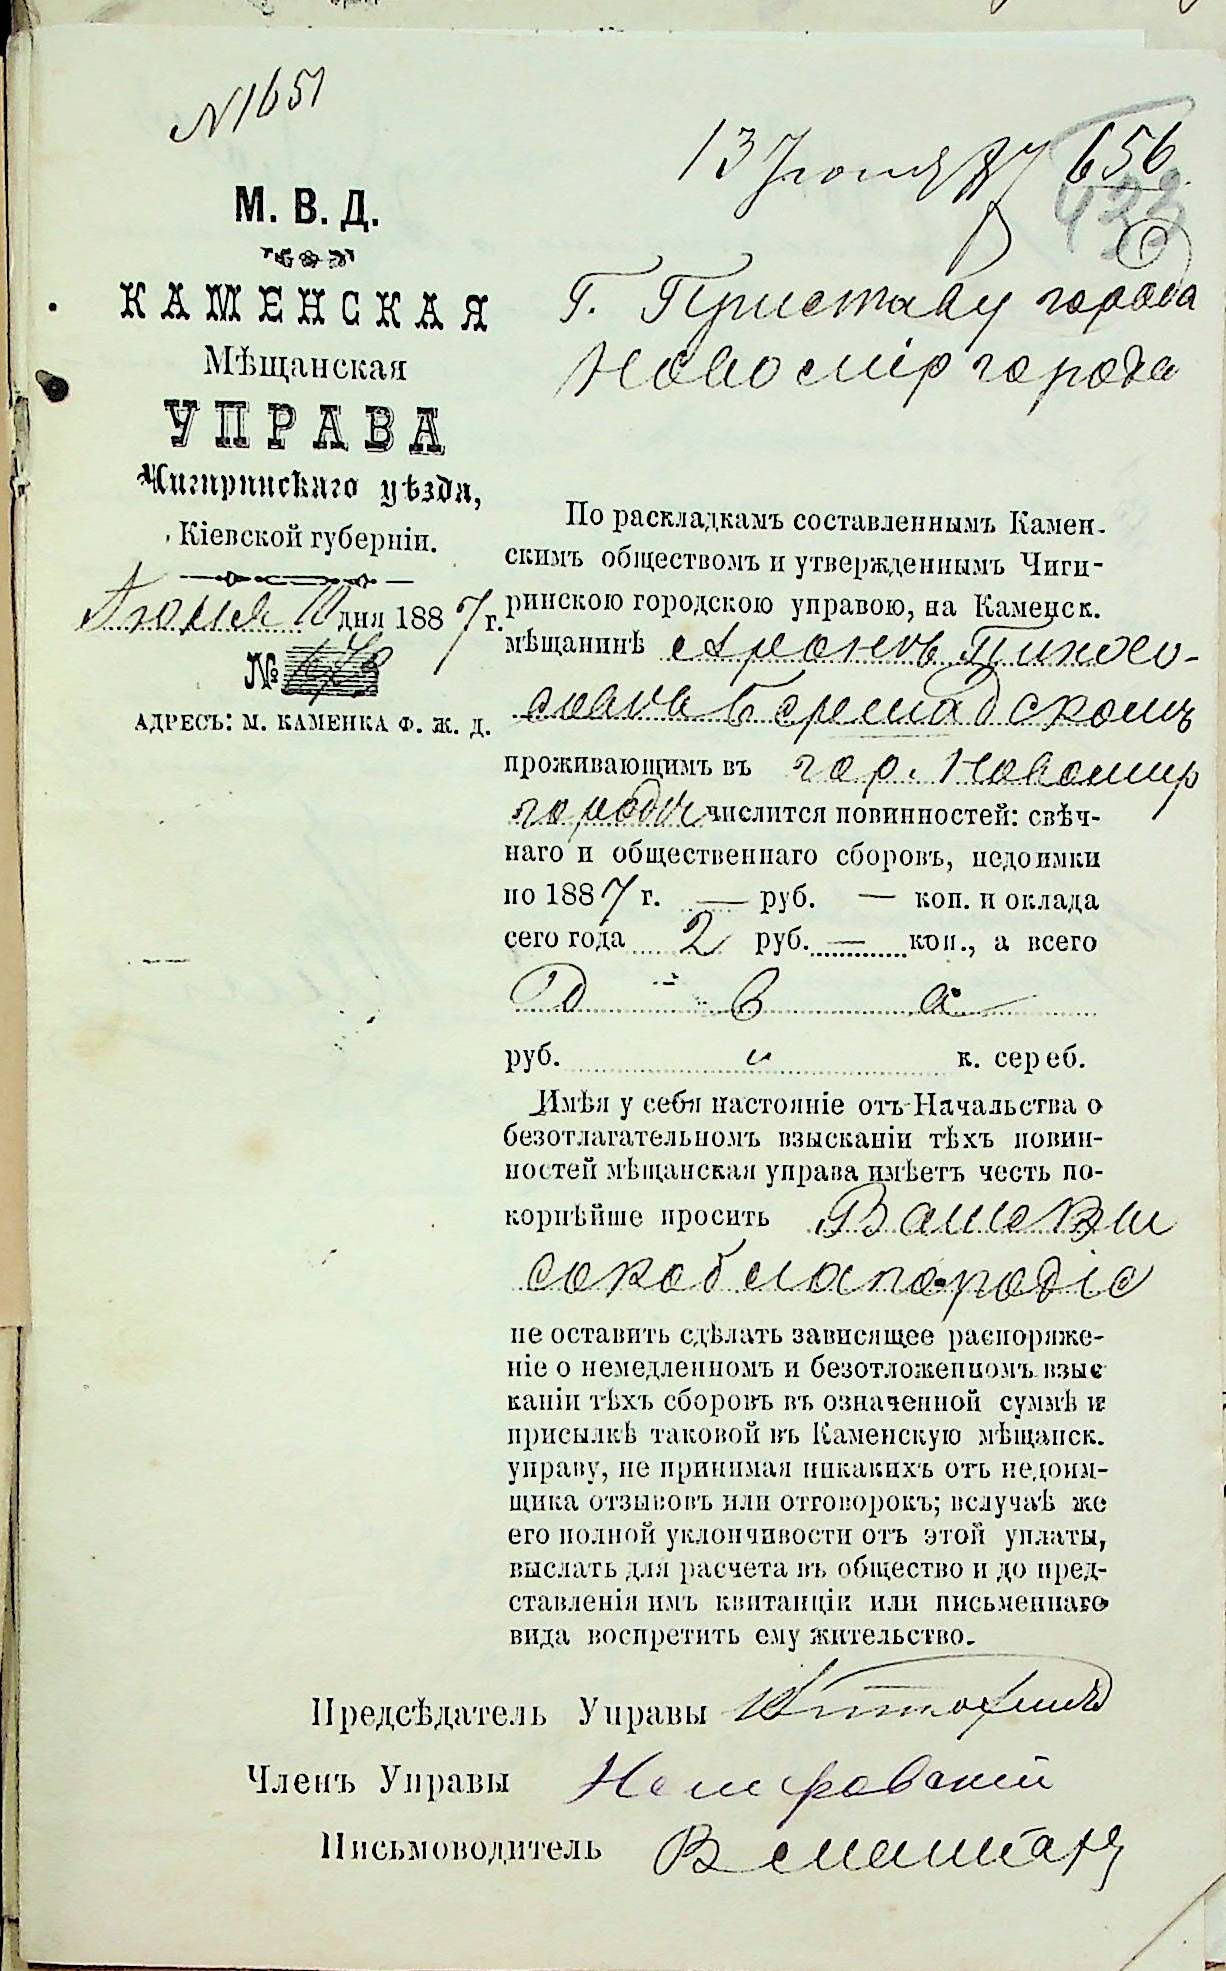 N1651
13 Іюня 87
656
423
М. В. Д.
КАМЕНСКАЯ
Мѣщанская
УПРАВА
Чигиринскаго уѣзда,
Кіевской губерніи.
Іюня 10 дня 1887 г.
№
АДРЕСЪ: М. КАМЕНКА Ф. Ж. Д.
Г. Приставу города
Новомиргорода
По раскладкамъ составленнымъ Камен-
скимъ обществомъ и утвержденнымъ Чиги-
ринскою городскою управою, на Каменск.
мѣщанинѣ Аронѣ Пиносо-
вомъ Бершадскомъ
проживающимъ въ гор. Новомир
городѣ числится повинностей: свѣч-
наго и общественнаго сборовъ, недоимки
по 1887 г. — руб. — коп. и оклада
сего года 2 руб. — коп., а всего
Два
руб. " к. сереб.
Имѣя у себя настояніе отъ Начальства о
безотлагательномъ взысканіи тѣхъ повин-
ностей мѣщанская управа имѣетъ честь по-
корнѣйше просить Ваше Вы
сокоблагородіе
не оставить сдѣлать зависящее распоряже-
ніе о немедленномъ и безотложенномъ взыс
каніи тѣхъ сборовъ въ означенной суммѣ и
присылкѣ таковой въ Каменскую мѣщанск.
управу, не принимая никакихъ отъ недоим-
щика отзывовъ или отговорокъ; вслучаѣ же
его полной уклончивости отъ этой уплаты,
выслать для расчета въ общество и до пред-
ставленія имъ квитанціи или письменнаго
вида воспретить ему жительство.
Предсѣдатель Управы
Членъ Управы
Письмоводитель